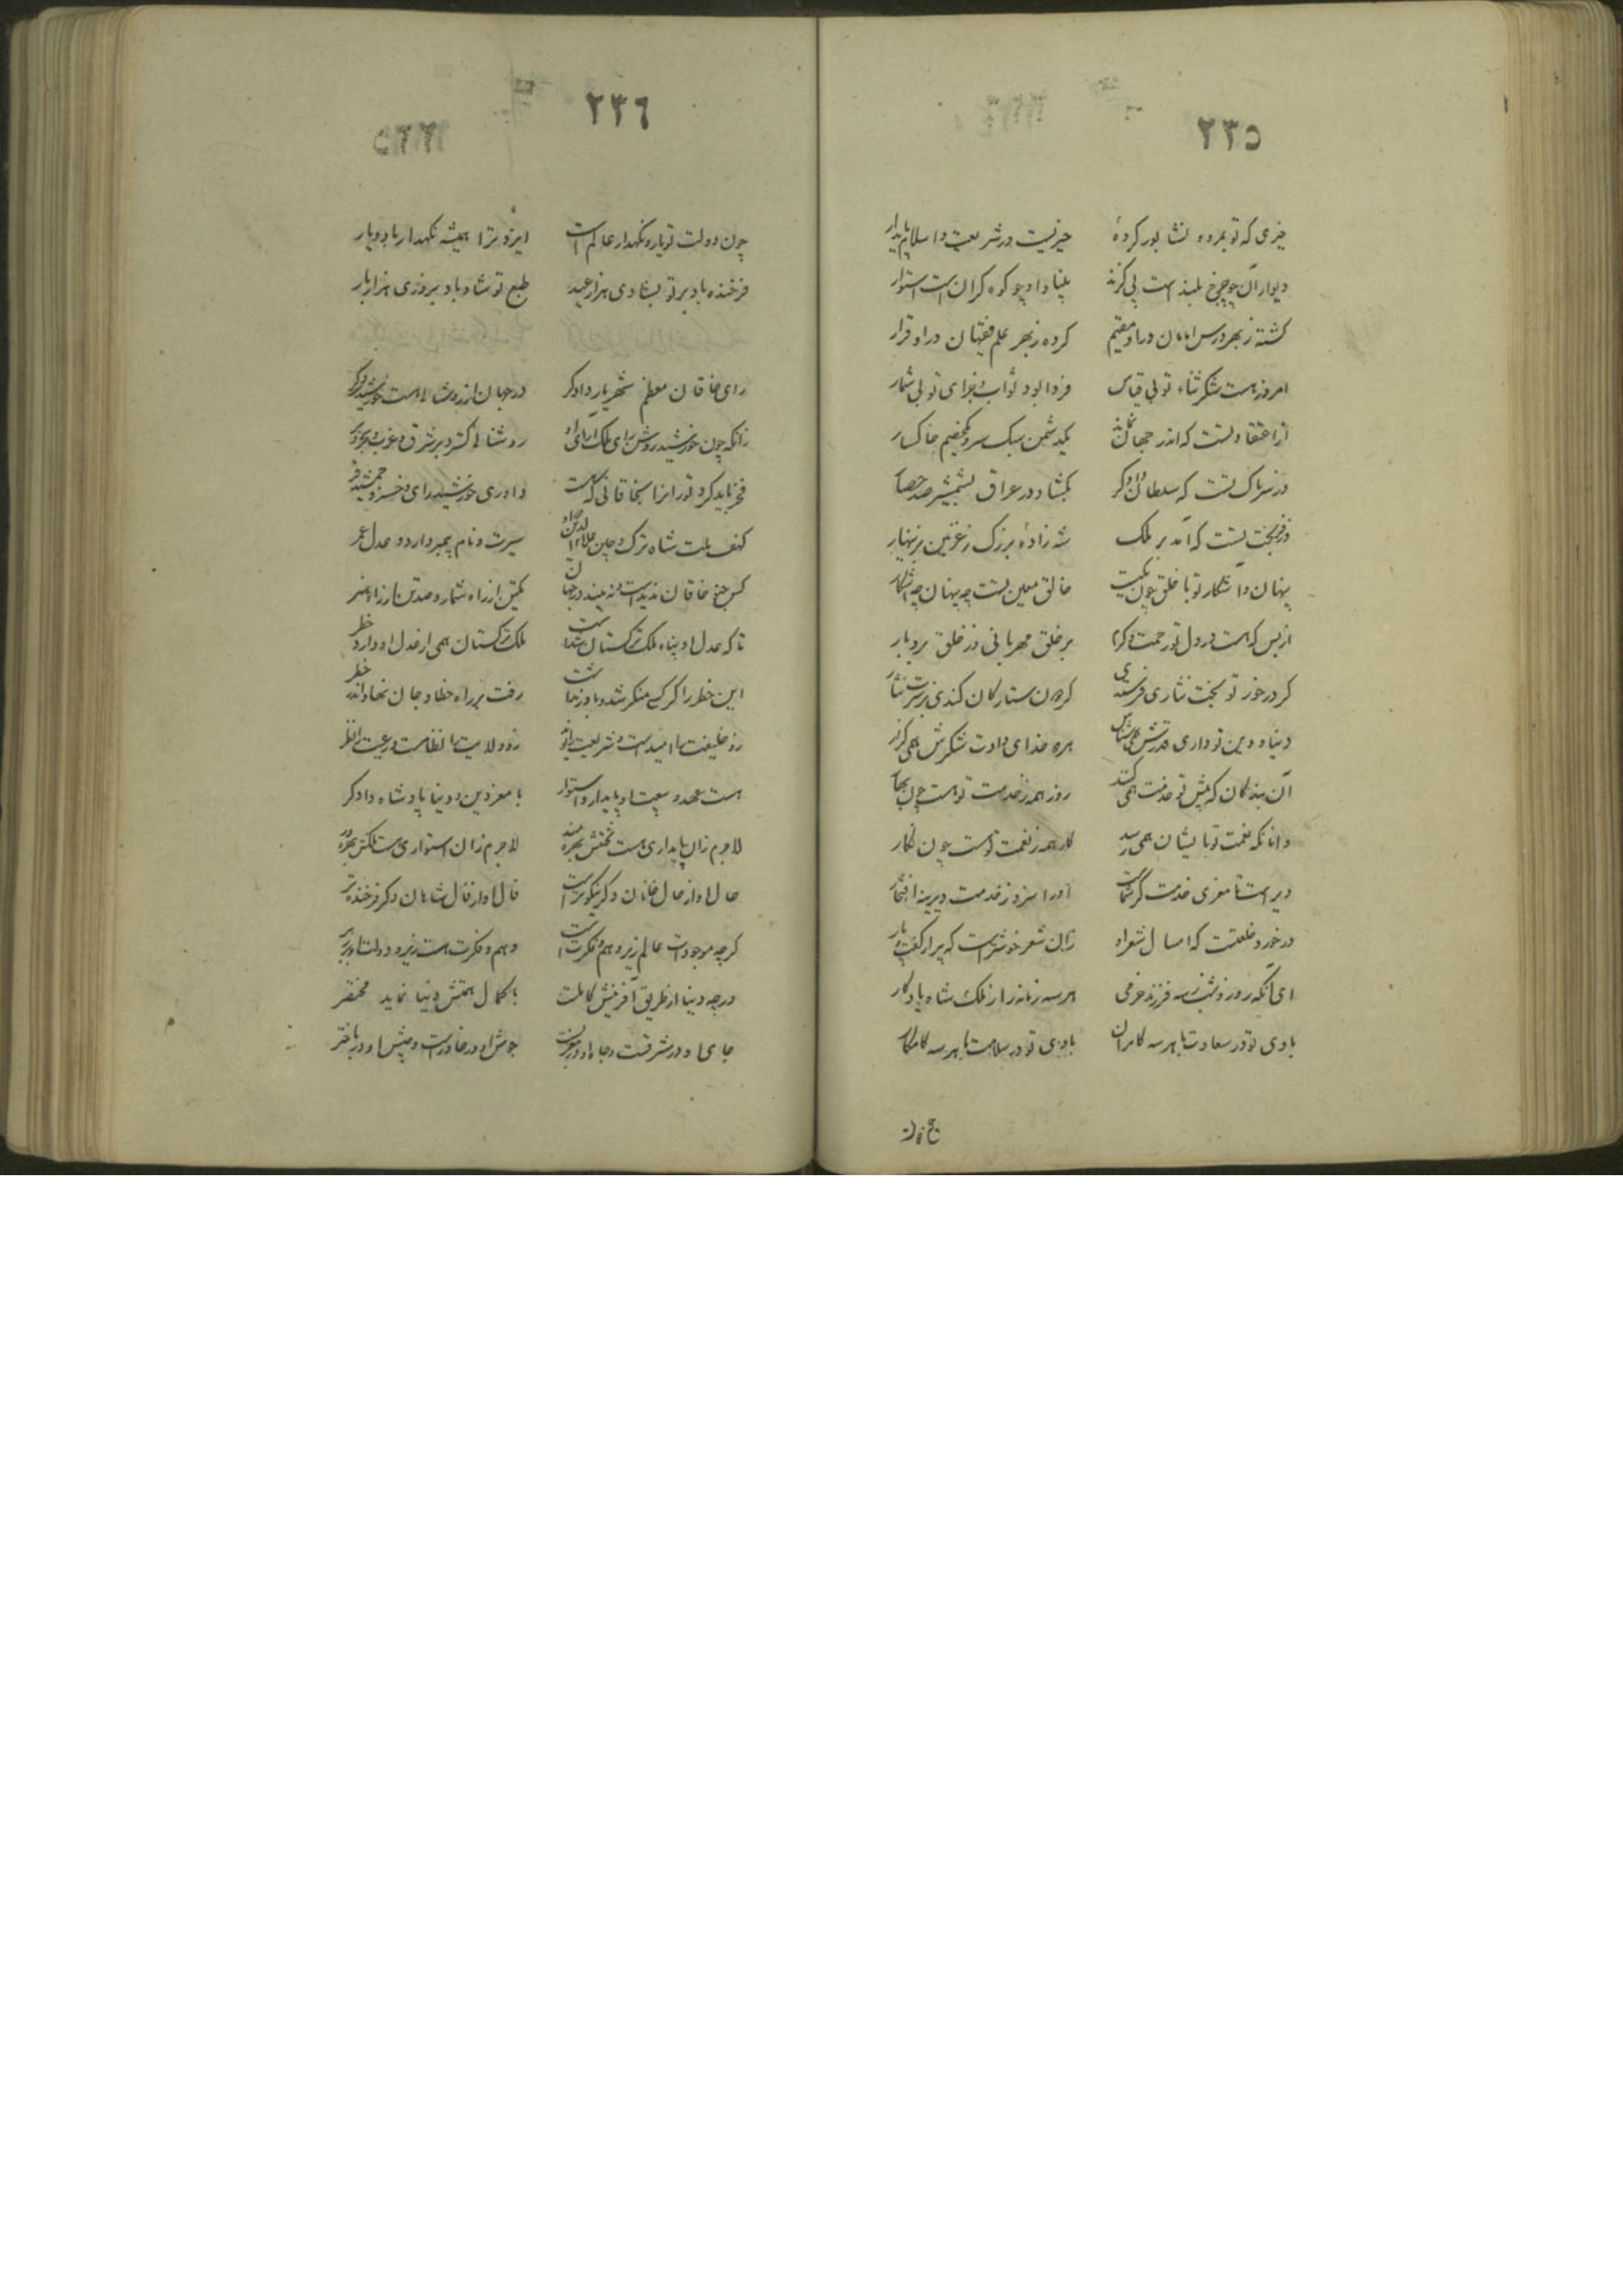 ٢٣٥
خیری که تو بمرو و نشابور کردهٔ خیریست در شریعت و اسلام پایدار
دیوار آن چو چرخ بلند است بی گزند بنیاد او چو کوه گران است استوار
گشته ز بهر درس امامان در او مقیم کرده ز بهر علم فقیهان در او قرار
امروز هست شکر و ثناء تو بی قیاس فردا بود ثواب و جزای تو بی شمار
از اعتقاد تست که اندر جهان نماند یک دشمن سبک سر و یک خصم خاکسار
وز سر پاک تست که سلطان دادگر بگشاد در عراق بشمشیر صد حصار
وز فر بخت تست که آمد بر ملک شه زادهٔ بزرگ ز غزنین بزینهار
پنهان و آشکار تو با خلق چون یکیست خالق معین تست چه پنهان چه آشکار
از بس که هست در دل تو رحمت و کرم بر خلق مهربانی وز خلق بردبار
گر در خور تو بخت نثاری فرستدی گردون ستارگان کندی بر سرت نثار
دنیا و دین تو داری قدرش همی شناس هر دو خدای دادت شکرش همی گزار
آن بندگان که پیش تو خدمت همی کنند روز همه ز خدمت تو هست چون بهار
وانانکه نعمت تو بایشان همی رسد کار همه ز نعمت تو است چون نگار
دیر است تا معزی خدمتگر شماست او را سزد ز خدمت دیرینه افتخار
در خورد خلعتست که امسال شعر او زان شعر خوشتر است که پیرار گفت و پار
ای آنکه روز و شب بسه فرزند خرمی هر سه زمانه را ز ملک شاه یادگار
بادی تو در سعادت با هر سه کامران بادی تو در سلامت با هر سه کامکار
٢٣٦
چون دولت تو یار و نگهدار عالم است ایزد ترا همیشه نگهدار باد و یار
فرخنده باد بر تو بشادی هزار عید طبع تو شاد باد بروزی هزار بار
رای خاقان معظم شهریار دادگر در جهان از روشنائی هست خورشید دگر
زانکه چون خورشید روشن رای ملک آرای او روشنائی گسترد بر شرق و غرب و بحر و بر
فخر باید کرد توران را بخاقانی که هست داوری خورشید رای و خسرو جمشید فر
کهف ملت شاه ترک و چین علاء الدین که او سیرت و نام پیمبر دارد و عدل عمر
کس چو خاقان ندیدست و نه بیند در جهان یک تن از راه شمار و صد تن از راه هنر
تا که عدل او پناه ملک ترکستان شدست ملک ترکستان همی از عدل او دارد خطر
این خطر را گر کسی منکر شد و باور نداشت رفت بر راه خطا و جان نهاد اندر خطر
زو خلیفت را امیدست و شریعت را قوام زو ولایت را نظامست و رعیت را نظر
هست عهد و بیعت او پایدار و استوار با معز دین و دنیا پادشاه دادگر
لاجرم زان پایداری هست بختش بهره مند لاجرم زان استواری هست ملکش بهره ور
حال او از حال خانان دگر نیکوتر است فال او از فال شاهان دگر فرخنده تر
گرچه موجودات عالم زیر وهم و فکرت است وهم و فکرت هست زیر و دولت او بر زبر
در چه دنیا از طریق آفرینش کاملست با کمال همتش دنیا نماید مختصر
جای او در مشرقست و جاه او در مغربست جوش او در خاور است و جیش او در باختر